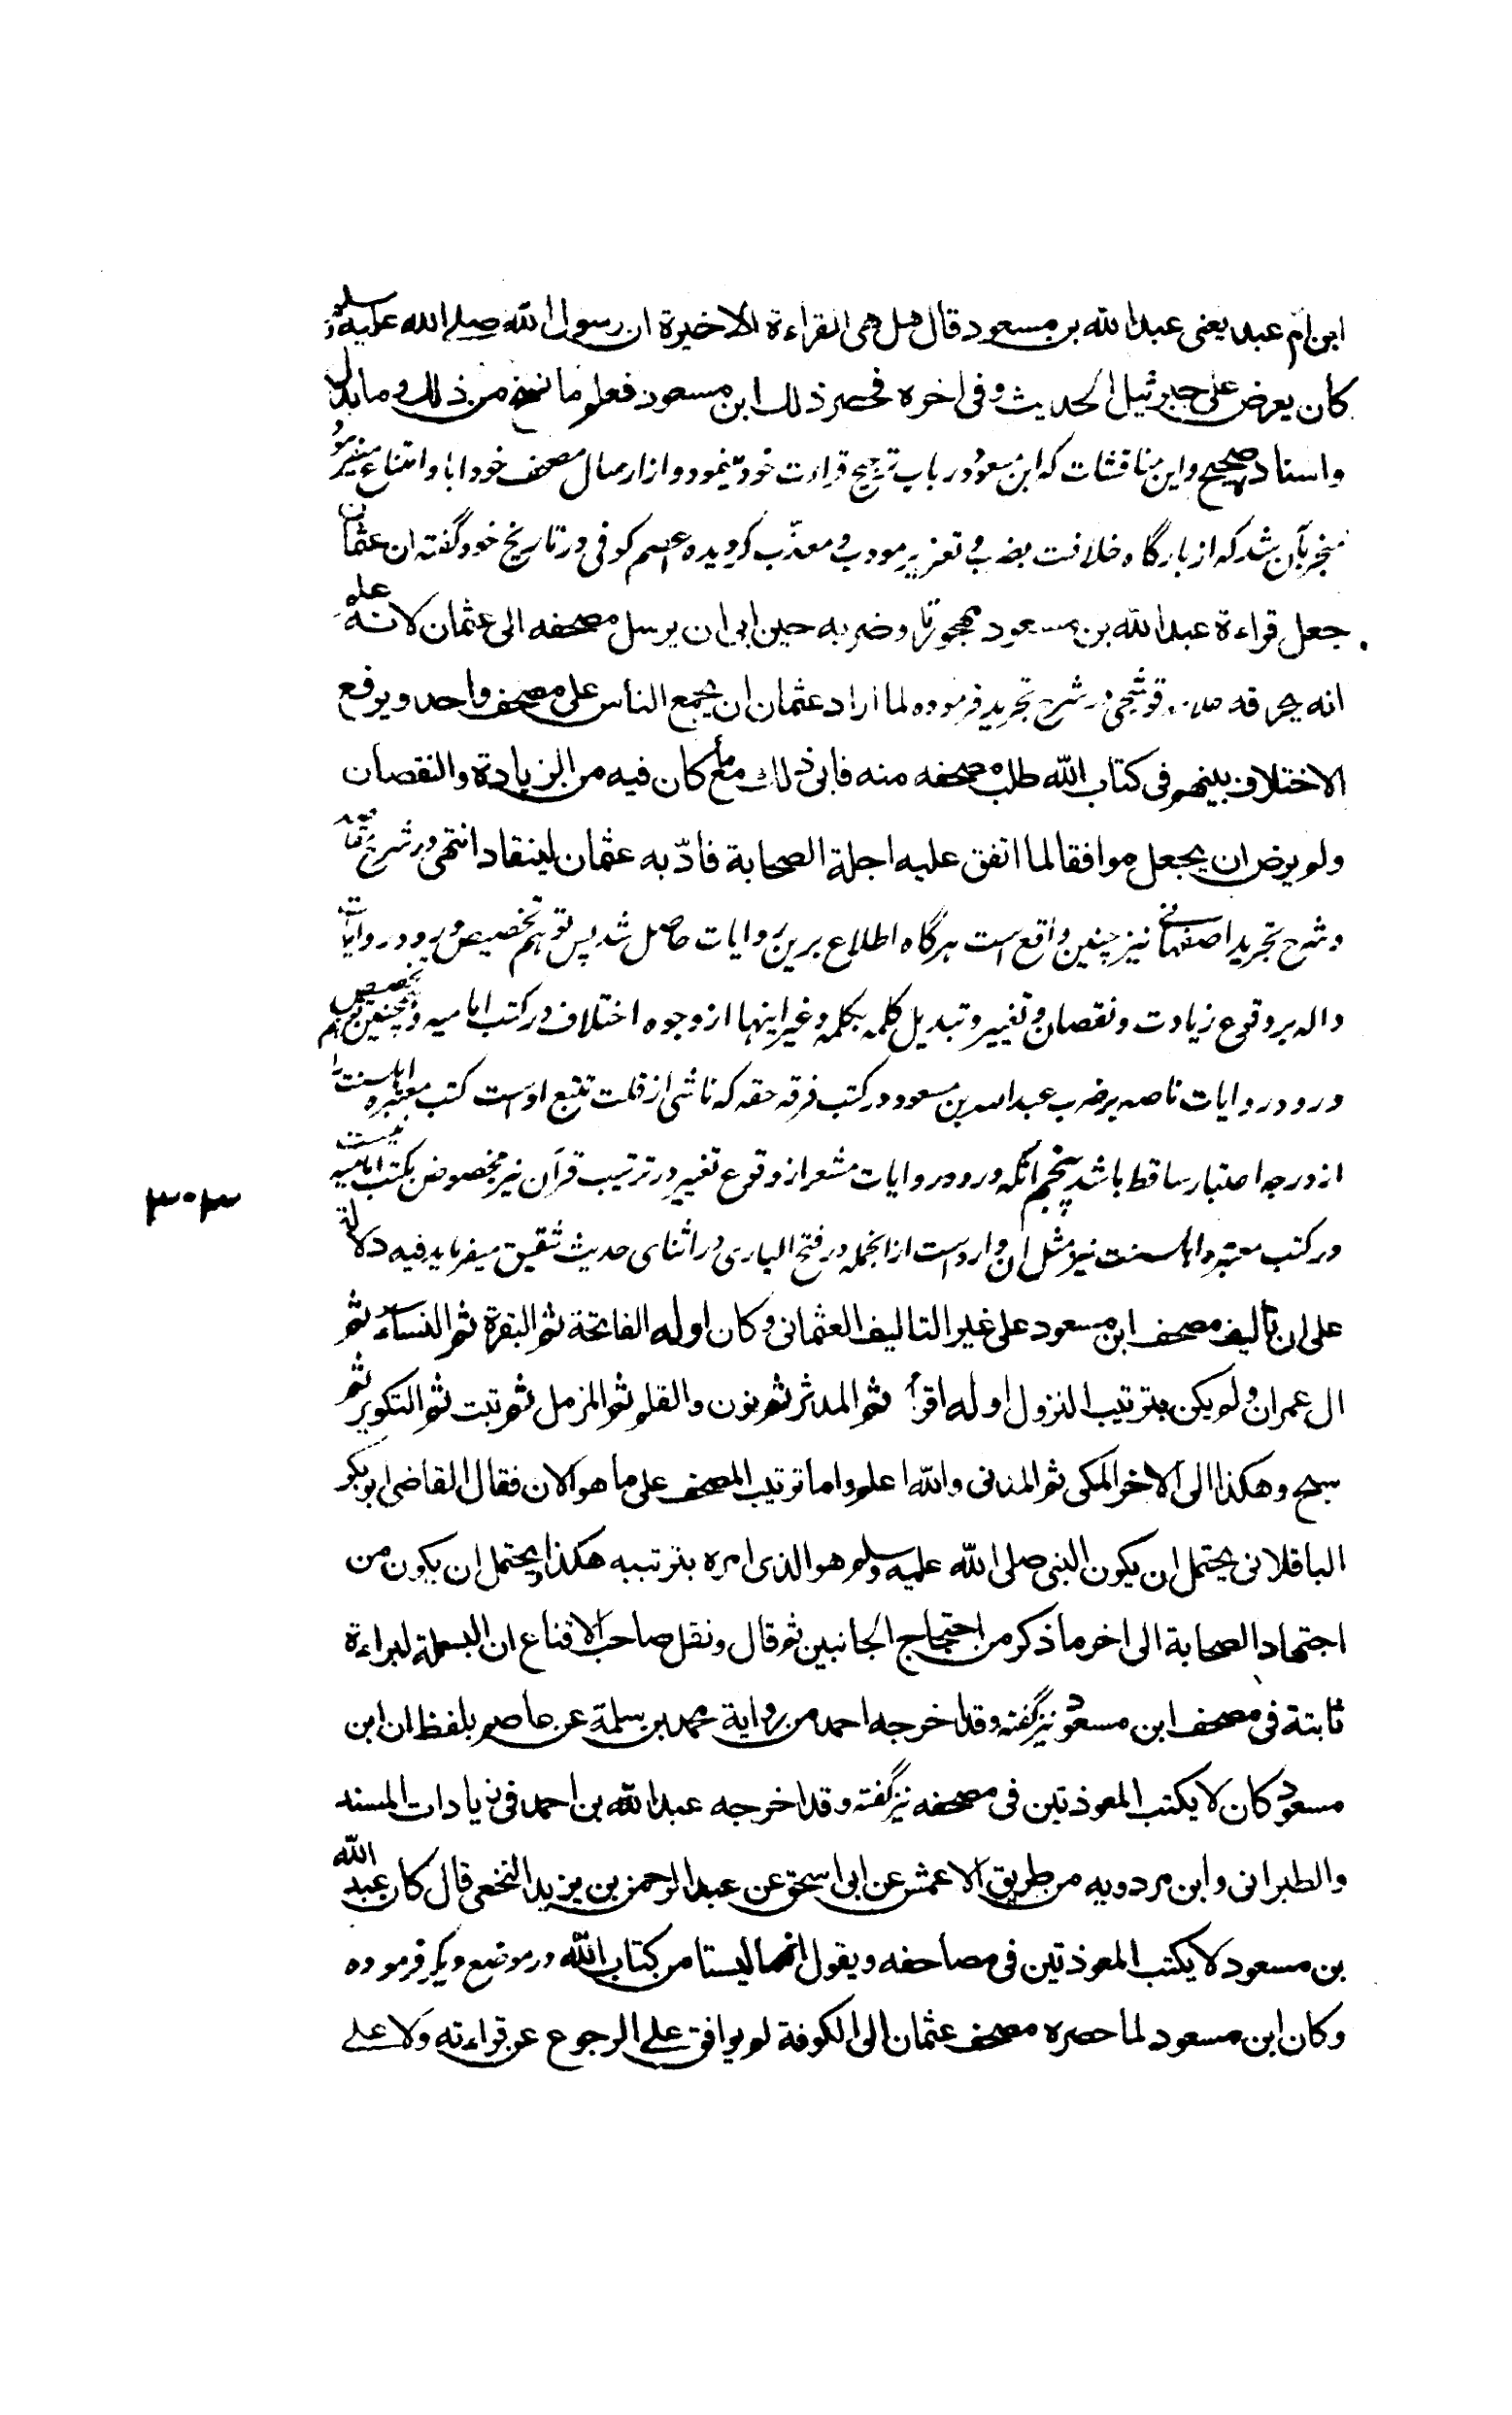 ابن ام عبد یعنی عبد الله بن مسعود قال هل هی القراءة الاخیرة ان رسول الله صلی الله علیه وسلم
کان یعرض علی جبرئیل الحدیث وفی اخره فحضر ذلک ابن مسعود فعلم ما نسخ من ذلک وما بدل
واسناده صحیح و این مناقشات که ابن مسعود در باب ترجیح قراءت خود مینمود و از ارسال مصحف خود ابا و امتناع میفرمود
منجر بآن شد که از بارگاه خلافت بضرب و تعزیر مودب و معذب گردیده اعصم کوفی در تاریخ خود گفته ان عثمان
جعل قراءة عبد الله بن مسعود مهجورة وضربه حین ابی ان یرسل مصحفه الی عثمان لانه علم
انه یحرقه قوشجی در شرح تجرید فرموده لما اراد عثمان ان یجمع الناس علی مصحف واحد ویرفع
الاختلاف بینهم فی کتاب الله طلب مصحفه منه فابی ذلک مع ما کان فیه من الزیادة والنقصان
ولم یرض ان یجعل موافقا لما اتفق علیه اجلة الصحابة فادّبه عثمان لینقاد انتهی و در شرح مقاصد
و شرح تجرید اصفهانی نیز چنین واقع است هرگاه اطلاع برین روایات حاصل شد پس توهم تخصیص ورود روایات
داله بر وقوع زیادت و نقصان و تغییر و تبدیل کلمه بکلمه و غیر اینها از وجوه اختلاف در کتب امامیه و همچنین توهم تخصیص
ورود روایات ناصه بر ضرب عبد الله بن مسعود در کتب فرقه حقه که ناشی از قلت تتبع اوست کتب معتبره اهلسنت را
از درجه اعتبار ساقط باشد پنجم انکه ورود روایات مشعر از وقوع تغییر در ترتیب قرآن نیز مخصوص بکتب امامیه نیست
در کتب معتبره اهلسنت نیز مثل ان وارد است از انجمله در فتح الباری در اثنای حدیث شقیق میفرماید فیه دلالة
علی ان تالیف مصحف ابن مسعود علی غیر التالیف العثمانی و کان اوله الفاتحة ثم البقرة ثم النساء ثم
ال عمران ولم یکن بترتیب النزول اوله اقرأ ثم المدثر ثم نون والقلم ثم المزمل ثم تبت ثم التکویر ثم
سبح و هکذا الی الاخر المکی ثم المدنی والله اعلم واما ترتیب المصحف علی ما هو الان فقال القاضی ابو بکر
الباقلانی یحتمل ان یکون النبی صلی الله علیه وسلم هو الذی امره بترتیبه هکذا ویحتمل ان یکون من
اجتهاد الصحابة الی اخر ما ذکر من احتجاج الجانبین ثم قال ونقل صاحب الاقناع ان البسملة لبراءة
ثابتة فی مصحف ابن مسعود نیز گفته وقد اخرجه احمد من روایة محمد بن سلمة عن عاصم بلفظ ان ابن
مسعود کان لا یکتب المعوذتین فی مصحفه نیز گفته وقد اخرجه عبد الله بن احمد فی زیادات المسند
والطبرانی وابن مردویه من طریق الاعمش عن ابی اسحق عن عبد الرحمن بن یزید النخعی قال کان عبد الله
بن مسعود لا یکتب المعوذتین فی مصاحفه ویقول انهما لیستا من کتاب الله در موضع دیگر فرموده
وکان ابن مسعود لما حضره مصحف عثمان الی الکوفة لم یوافق علی الرجوع عن قراءته ولا علی
۳۰۳